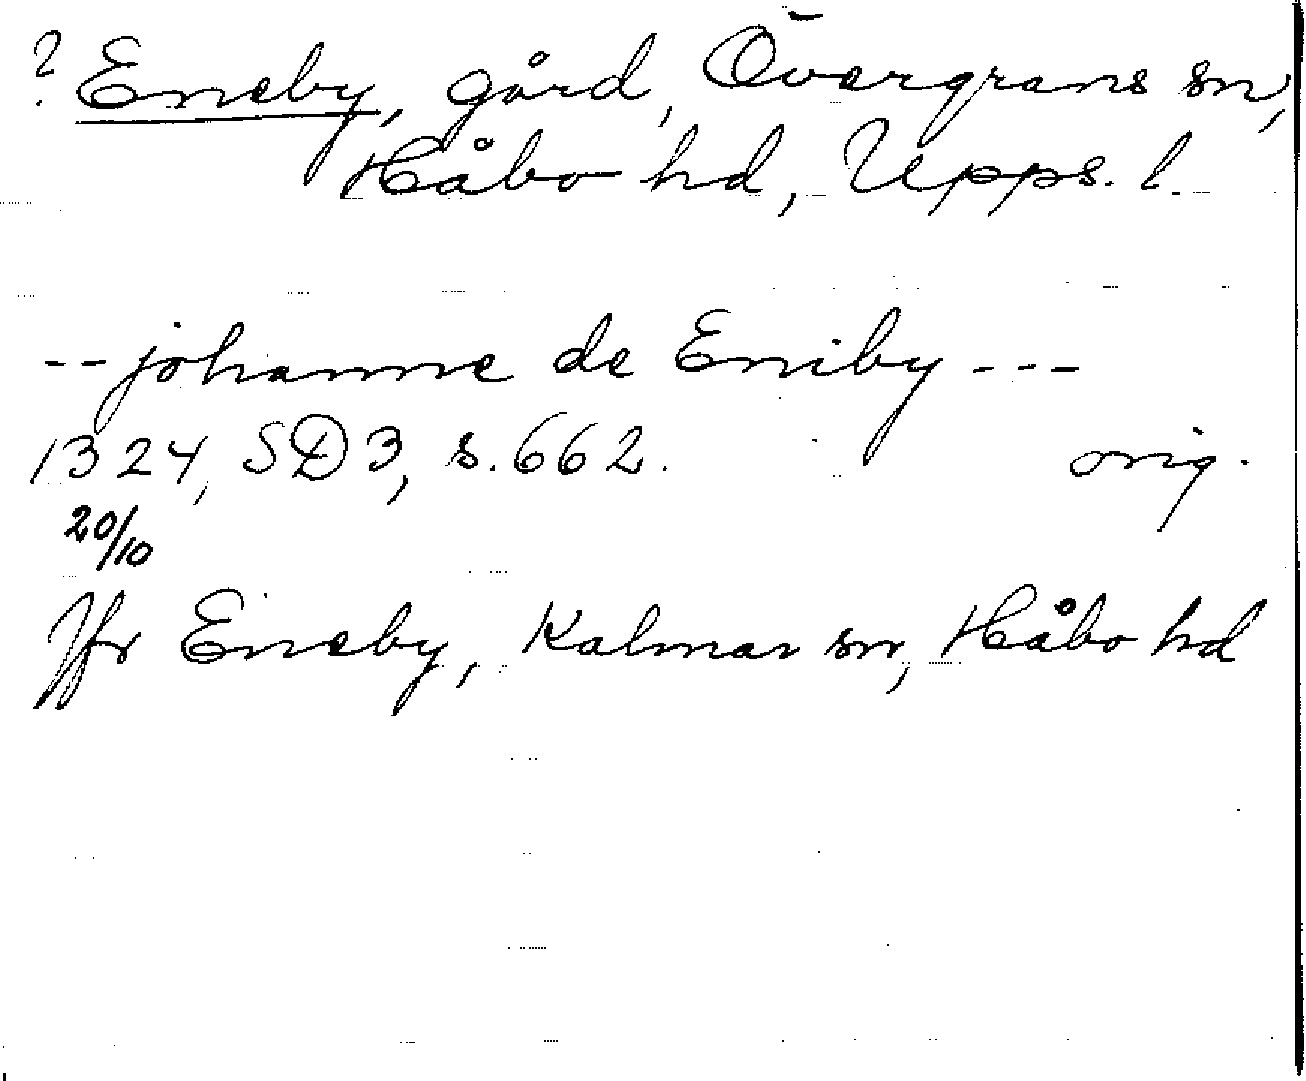 ? Eneby, gård, Övergrans sn,
Håbo hd, Upps. l.
-- johanne de Eniby ---
1324, SD 3, s. 662. orig.
20/10
Jfr Eneby, Kalmar sn, Håbo hd